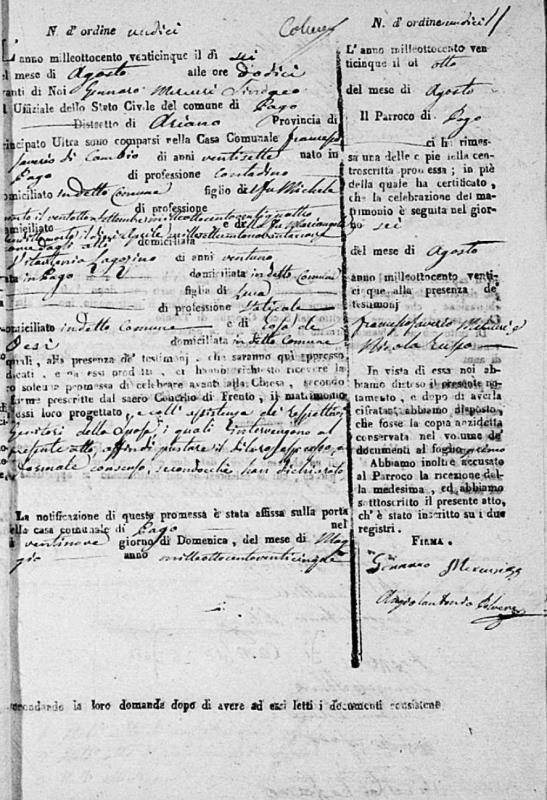 N. d'ordine undici
L'anno milleottocento venticinque il dì sei
el mese di Agosto alle ore dodici
vanti di Noi Gennaro Mercuri Sindaco
d Uffiziale dello Stato Civile del comune di Pago
Distretto di Ariano Provincia di
rincipato Ultra sono comparsi nella Casa Comunale Francesco
Saverio di Cambio di anni ventisette nato in
Pago di professione Contadino
omiciliato in detto Comune figlio del fu Michele
di professione
omiciliato e della fu
domiciliata
di anni ventuno
ata in Pago domiciliata in detto Comune
figlia di Luca
di professione
omiciliato in detto Comune e di Rosa de
domiciliata in detto Comune
quali, alla presenza de' testimonj, che saranno qui appresso
dicati, e da essi prodotti, ci hanno richiesto ricevere la
ro solenne promessa di celebrare avanti alla Chiesa, secondo
forme prescritte dal sacro Concilio di Trento, il matrimonio
essi loro progettato, e coll' assistenza de' rispettivi
Genitori della Sposa, i quali intervengono al
presente atto, affin di prestare il di loro espresso, e
formale consenso, secondo che han dichiarato
La notificazione di questa promessa è stata affissa sulla porta
ella casa comunale di Pago nel
dì ventinove giorno di Domenica, del mese di Mag
gio anno milleottocentoventicinque
econdando la loro domanda dopo di avere ad essi letti i documenti consistenti
N. d'ordine undici 11
L' anno milleottocento ven
ticinque il dì otto
del mese di Agosto
Il Parroco di Pago
ci ha rimes-
sa una delle copie della con-
troscritta promessa; in piè
della quale ha certificato,
che la celebrazione del ma-
trimonio è seguita nel gior-
no sei
del mese di Agosto
anno milleottocento venti-
cinque alla presenza de'
testimonj
Francesco Saverio Mercuri e
Nicola Russo
In vista di essa noi ab-
biamo disteso il presente no-
tamento, e dopo di averla
cifrata, abbiamo disposto,
che fosse la copia anzidetta
conservata nel volume de'
documenti al foglio primo
Abbiamo inoltre accusato
al Parroco la ricezione del-
la medesima, ed abbiamo
sottoscritto il presente atto,
ch'è stato inscritto su i due
registri.
FIRMA.
Gennaro Mercuri
Angelantonio Polvere